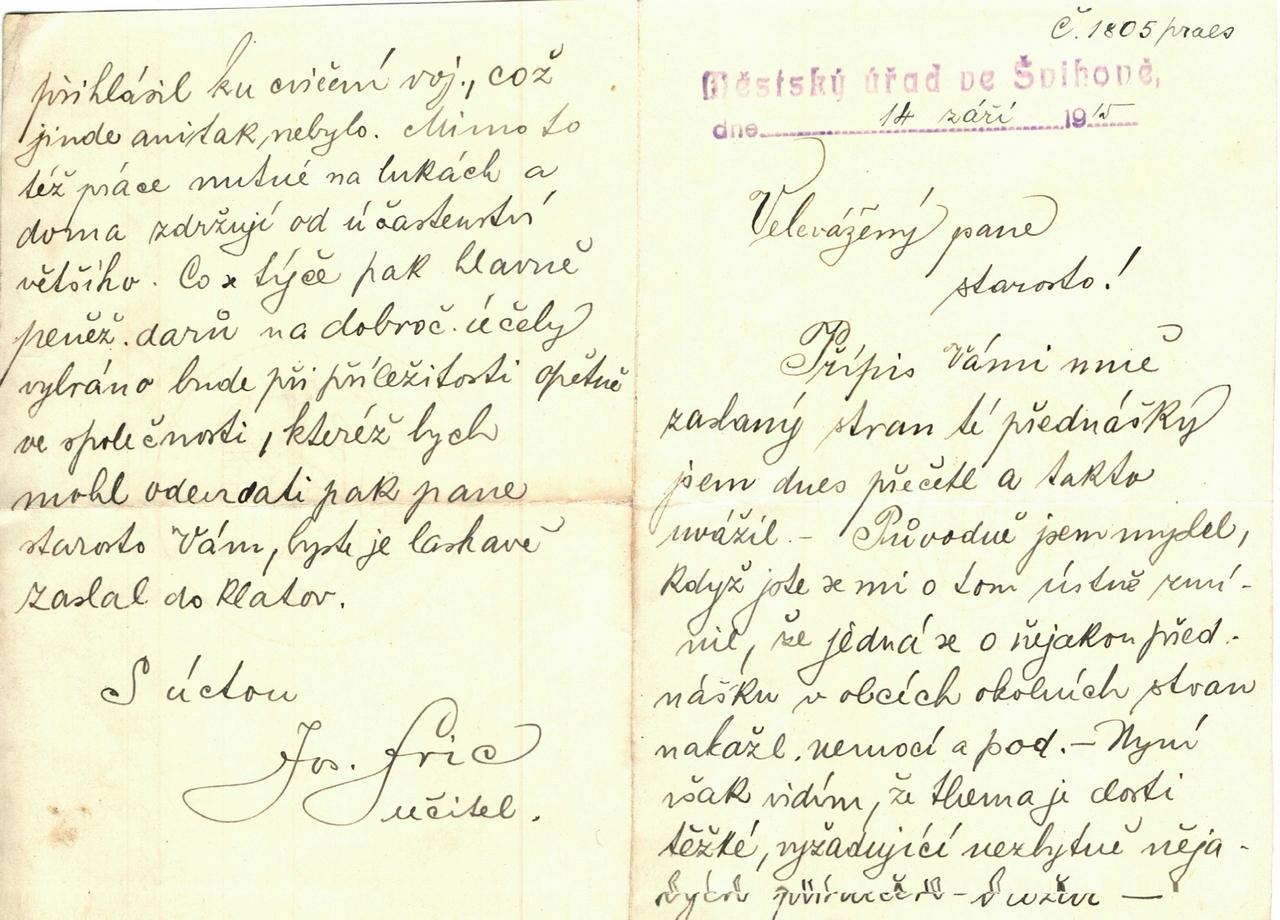 přihlásil ku cvičení voj., což
jinde ani tak nebylo. Mimo to
též práce nutné na lukách a
doma zdržují od účastenství
většího. Co se týče pak hlavně
peněž. darů na dobroč. účely
vybráno bude při příležitosti opětně
ve společnosti, kteréž bych
mohl odevzdati pak pane
starosto Vám, byste je laskavě
zaslal do Klatov.
S úctou
Jos. Fric
učitel.
Č. 1805/praes
Městský úřad ve Švihově,
dne 14 září 1915
Velevážený pane
starosto!
Přípis Vámi mně
zaslaný stran té přednášky
jsem dnes přečetl a takto
uvážil. – Původně jsem myslel,
když jste se mi o tom ústně zmí-
nil, že jedná se o nějakou před-
nášku v obcích okolních stran
nakažl. nemocí a pod. – Nyní
však vidím, že thema je dosti
těžké, vyžadující nezbytně něja-